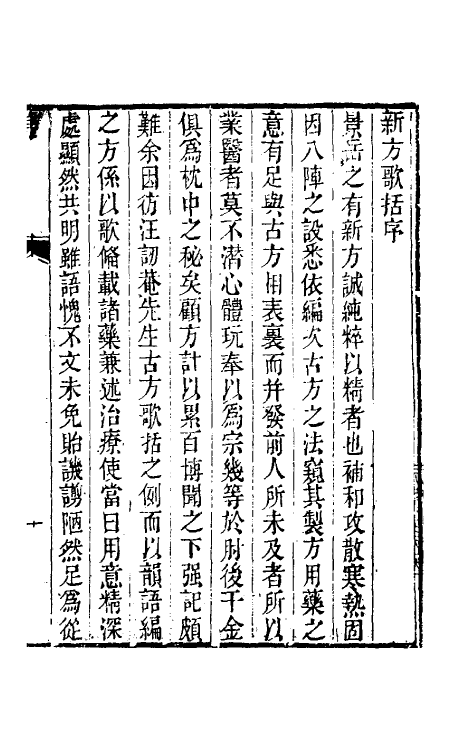 新方歌括序
景岳之有新方誠純粹以精者也補和攻散寒熱固
因八陣之設悉依編次古方之法窺其製方用藥之
意有足與古方相表裏而并發前人所未及者所以
業醫者莫不潛心體玩奉以爲宗幾等於肘後千金
俱爲枕中之秘矣顧方計以累百博聞之下强記頗
難余因彷汪訒菴先生古方歌括之例而以韻語編
之方係以歌備載諸藥兼述治療使當日用意精深
處顯然共明雖語愧不文未免貽譏謭陋然足爲從